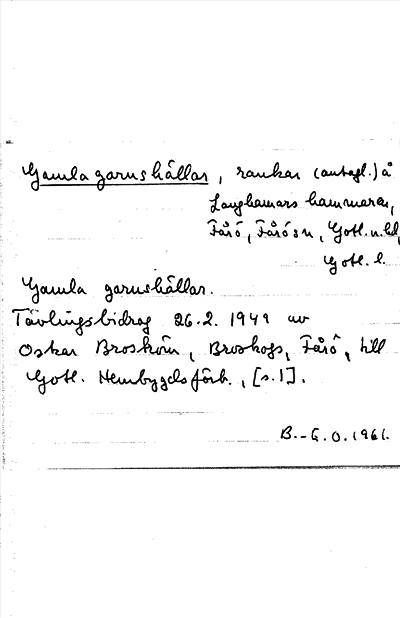 Gamla garnshällar, raukar (antagl.) å
Langhamars hammaren,
Fårö, Fårösn, Gotl. n. hd,
Gotl. l.
Gamla garnshällar.
Tävlingsbidrag 26.2. 1949 av
Oskar Broström, Broskogs, Fårö, till
Gotl. Hembygdsförb., [s.1].
B.-G.O. 1961.